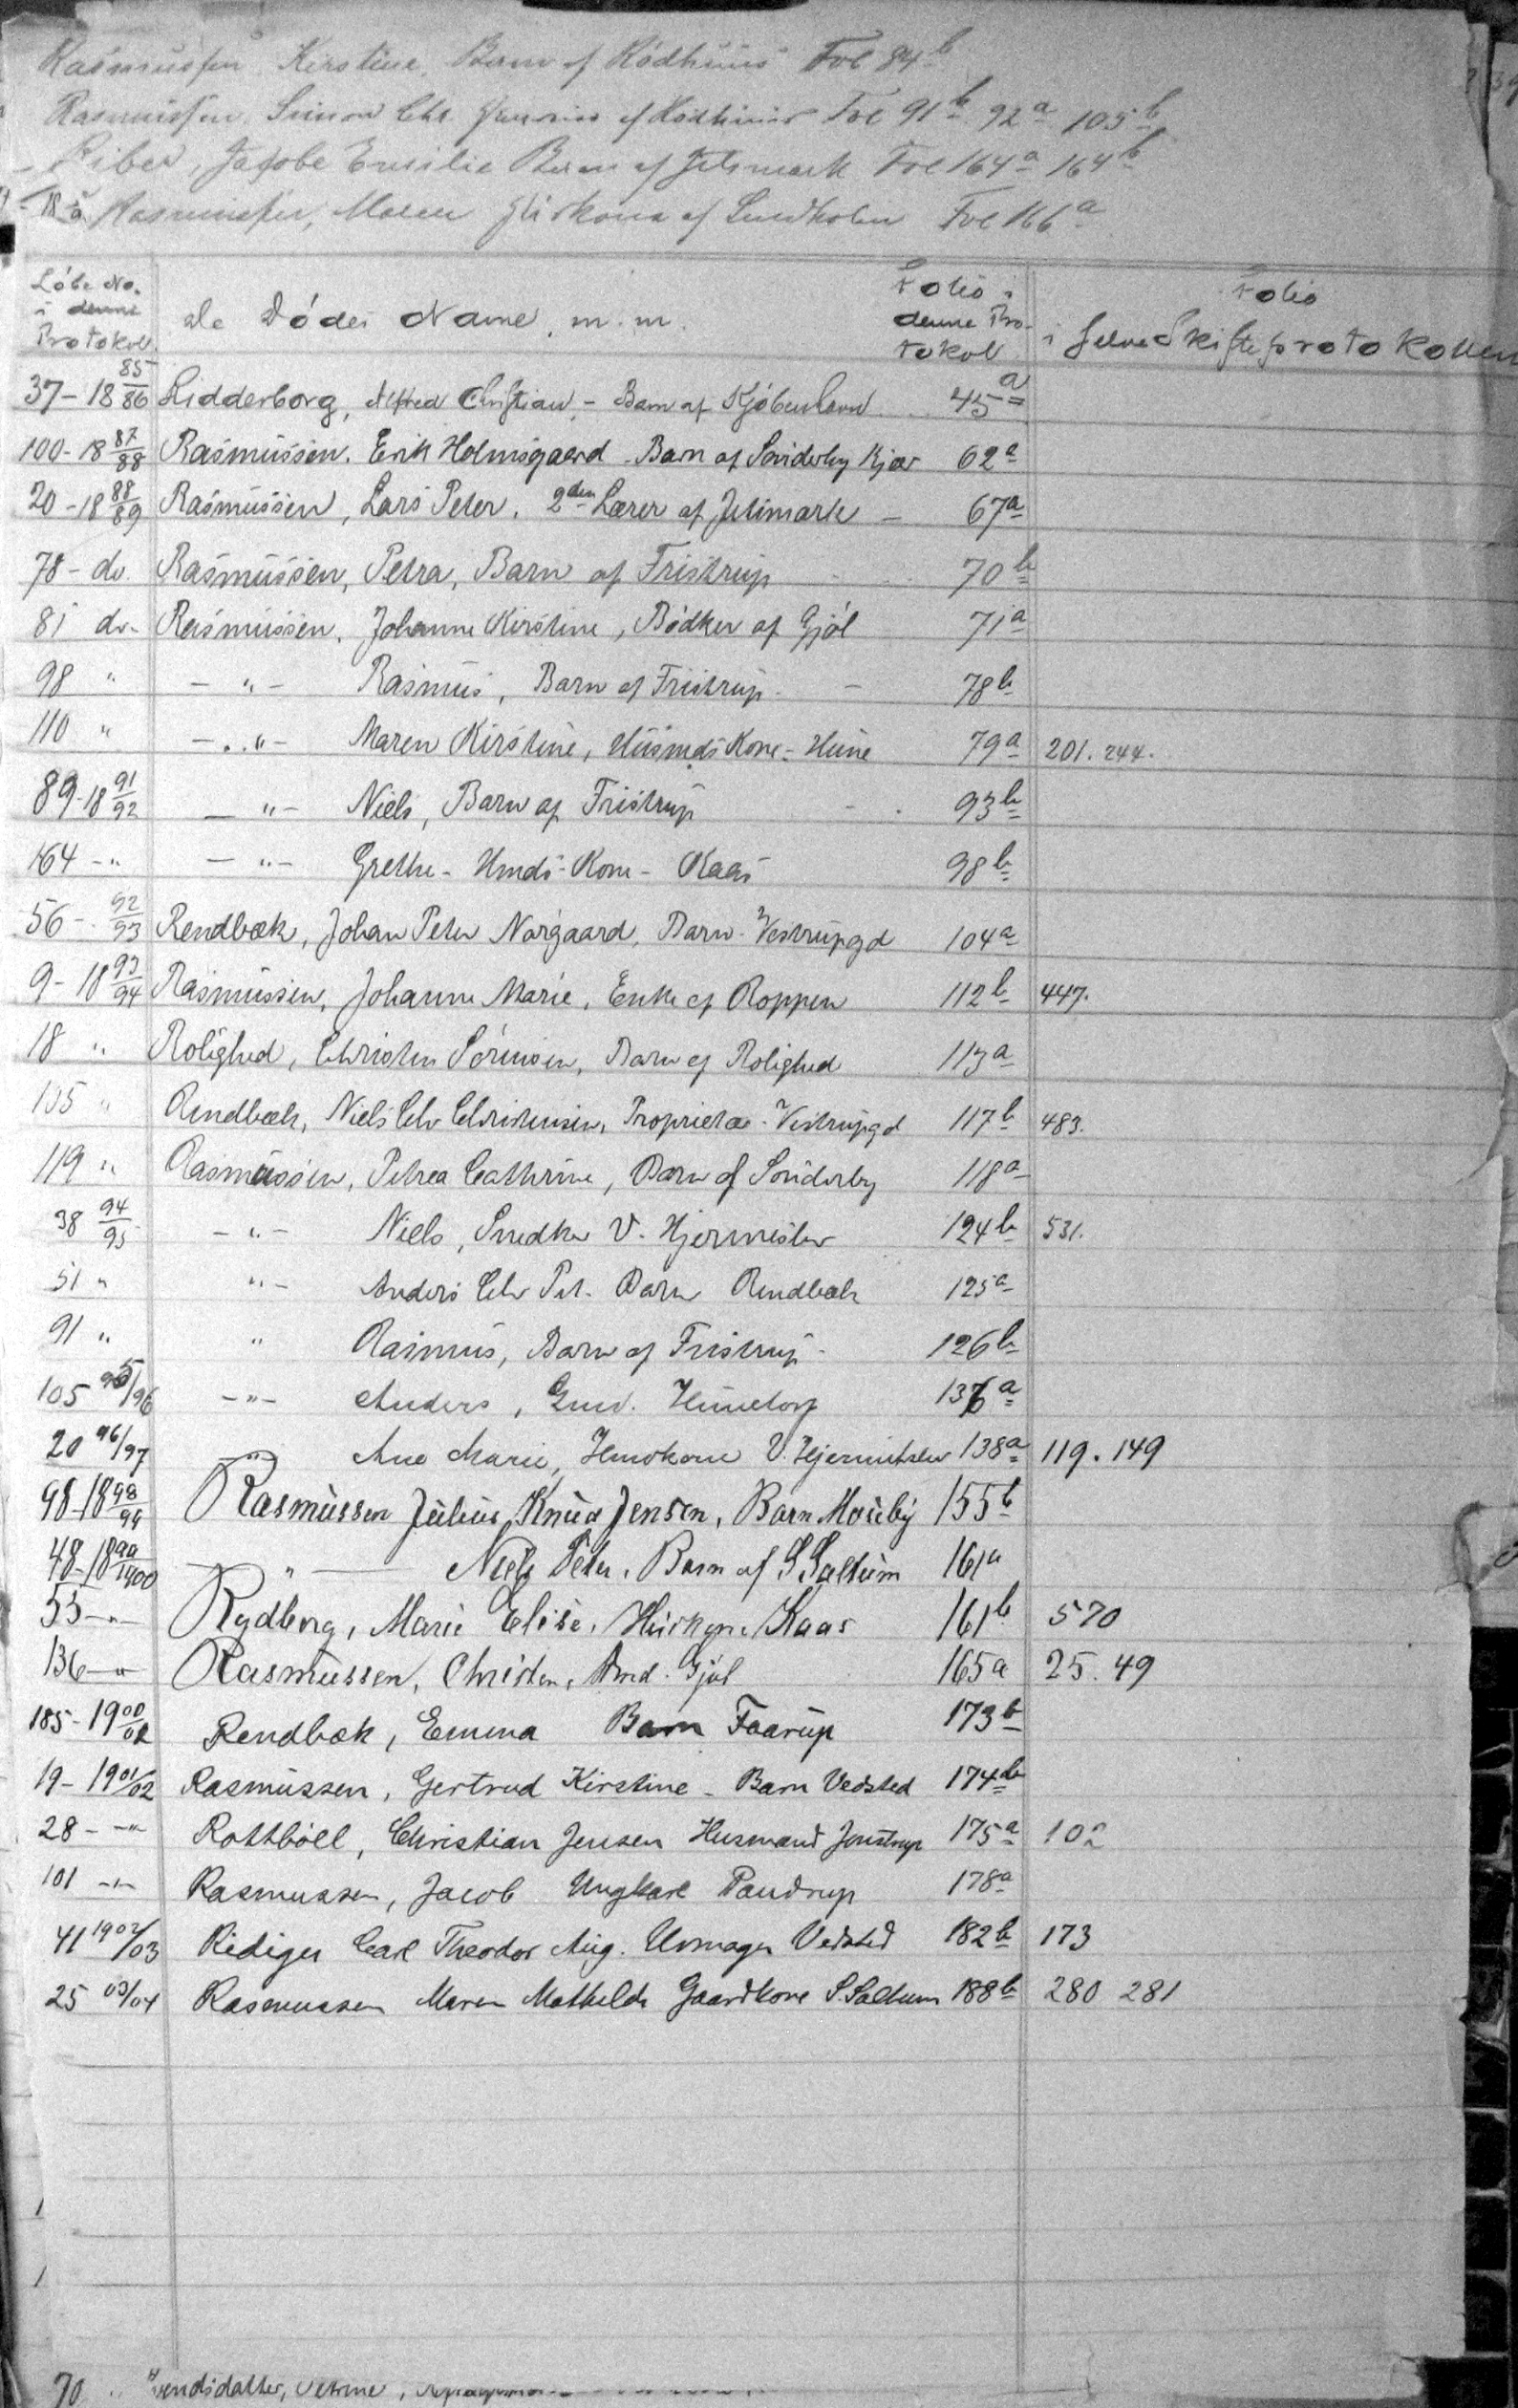 Rasmussen Kirstine, Barn af Rødhuus Fol 84 b
Rasmussen, Simon Chr. af Rødhuus Fol 91 b 92 a 105 b
Ribed, Jacobe Emilie Barn af Jetsmark Fol 164 a 164 b
Rasmussen, Maren af Lundholm Fol 166 a
Løbe No. i denne Protokol. | de Dødes Navne, m. m. | Folio i denne Protokol | Folio i selve Skifteprotokollen
37 - 18 85/86 Ridderborg, Alfred Christian, - Barn af Kjøbenhavn 45 a
100 - 18 87/88 Rasmussen. Erik Holmsgaard - Barn af Sønderby Kjær 62 a
20 - 18 88/89 Rasmussen, Lars Peter. 2den Lærer af Jetsmark - 67 a
78 - do. Rasmussen, Petra, Barn af Fristrup 70 b
81 do - Rasmussen, Johanne Kirstine, Bødker af Gjøl 71 a
98 " - " - Rasmus, Barn af Fristrup - 78 b
110 " - " - Maren Kirstine, Huusmds Kone - Hune 79 a 201. 244.
89 - 18 91/92 - " - Niels, Barn af Fristrup 93 b
164 - " - " - Grethe - Hmds - Kone - Kaas 98 b
56 - 92/93 Rendbæk, Johan Peter Nørgaard, Barn - Vestrupgd 104 a
9 - 18 93/94 Rasmussen, Johanne Marie, Enke af Roppen 112 b 447.
18 " Rolighed, Christen Sørensen, Barn af Rolighed 113 a
105 " Rendbæk, Niels Chr Christensen, Proprietær - Vestrupgd 117 b 483.
119 " Rasmussen, Petrea Cathrine, Barn af Sønderby 118 a
38 94/95 - " - Niels, Snedker V. Hjermislev 124 b 531.
51 " " - Anders Chr Pet. Barn Rendbæk 125 a
91 " " Rasmus, Barn af Fristrup - 126 b
105 95/96 - " - Anders, Gmd. Hunetorp 136 a
20 96/97 - " - Ane Marie, Hmskone V. Hjermitslev 138 a 119. 149
98 - 18 98/99 Rasmussen Julius Knud Jensen, Barn Moseby 155 b
48 - 18 99/1900 - " - Niels Peter, Barn af S Saltum 161 a
53 - " - Rydberg, Marie Elise, Huskone Kaas 161 b 570
136 - " Rasmussen, Christen, Hmd. Gjøl 165 a 25. 49
185 - 19 00/01 Rendbæk, Emma Barn Faarup 173 b
19 - 19 01/02 Rasmussen, Gertrud Kirstine - Barn Vedsted 174 b
28 - - " - Rottbøll, Christian Jensen Husmand Jonstrup 175 a 102
101 - " - Rasmussen, Jacob Ungkarl Pandrup 178 a
41 1902/03 Rediger Carl Theodor Aug. Urmager Vedsted 182 b 173
25 03/04 Rasmussen Maren Mathilde Gaardkone S. Saltum 188 b 280 281
70 " Svendsdatter, Petrine,